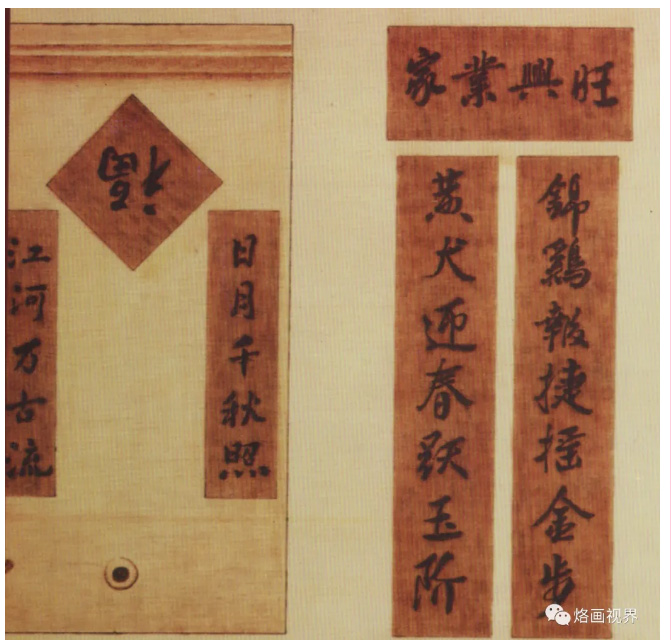 家業興旺
錦鷄報捷摇金步
黄犬迎春跃玉阶
福
日月千秋照
江河万古流
烙画视界